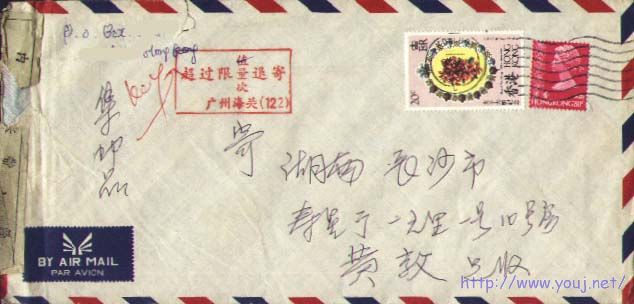 P.O. Box
Hong Kong
超过限值量次退寄
广州海关(122)
20c
香港
HONG KONG
HONG KONG
集邮品
寄
湖南 长沙市
寿星 一 里 一号
黄 收
BY AIR MAIL
PAR AVION
http://www.youj.net/